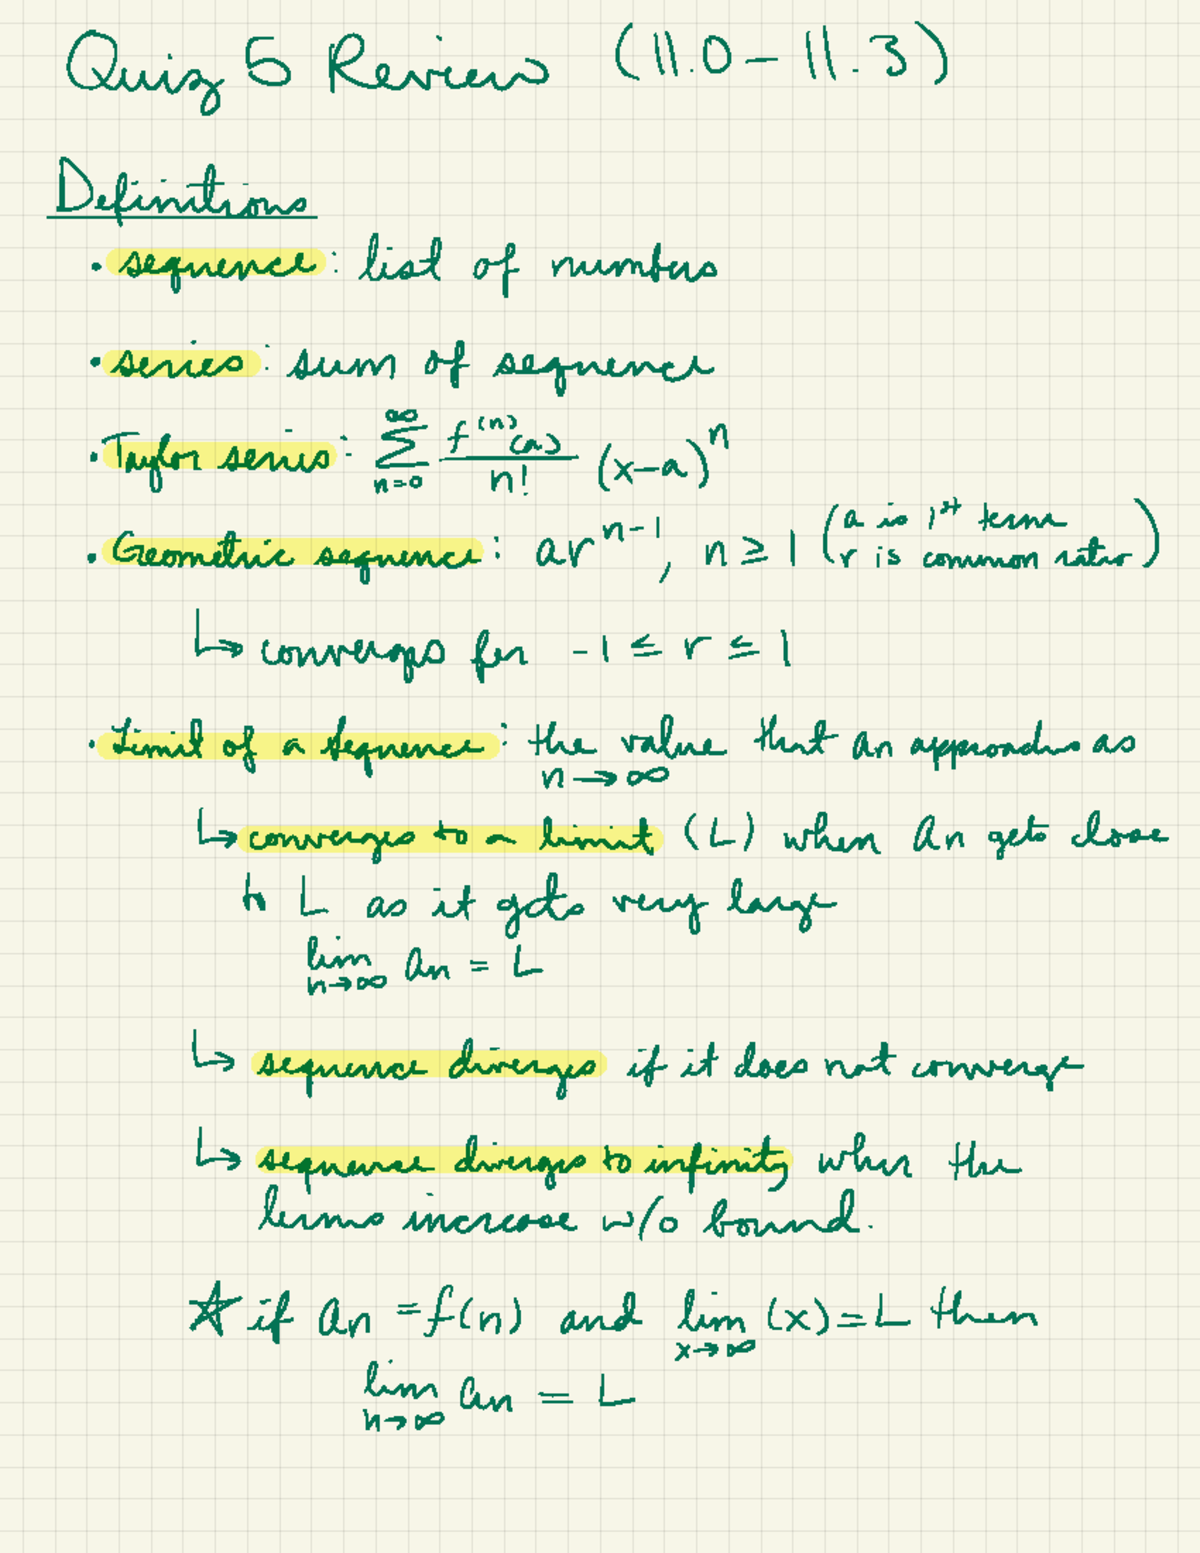 Quiz 5 Review (11.0 – 11.3)
Definitions
• sequence: list of numbers
• series: sum of sequence
• Taylor series: ∞ Σ n=0 f⁽ⁿ⁾(a) / n! (x-a)ⁿ
• Geometric sequence: arⁿ⁻¹, n ≥ 1 (a is 1st term
r is common ratio)
↳ converges for -1 ≤ r ≤ 1
• Limit of a sequence: the value that an approaches as
n → ∞
↳ converges to a limit (L) when an gets close
to L as it gets very large
lim n→∞ an = L
↳ sequence diverges if it does not converge
↳ sequence diverges to infinity when the
terms increase w/o bound.
☆ if an = f(n) and lim x→∞ (x) = L then
lim n→∞ an = L